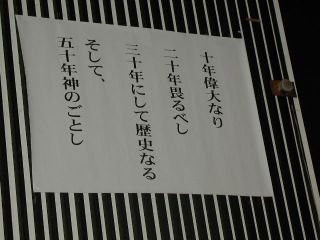 十年偉大なり
二十年畏るべし
三十年にして歴史なる
そして、
五十年神のごとし